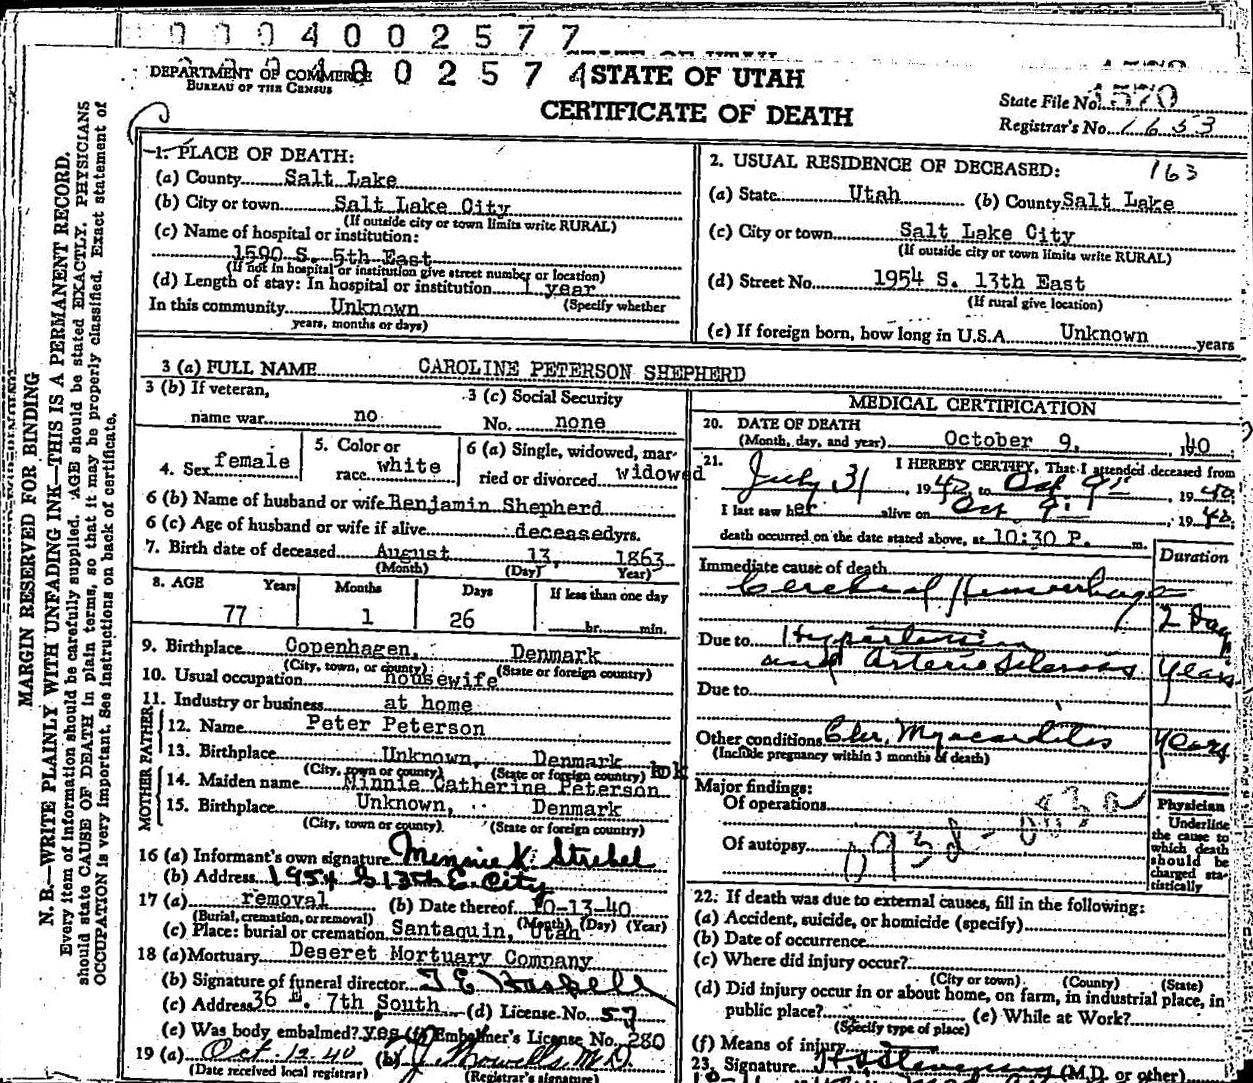 0004002577
DEPARTMENT OF COMMERCE
BUREAU OF THE CENSUS
002574
STATE OF UTAH
CERTIFICATE OF DEATH
State File No. 1570
Registrar's No. 1653
1. PLACE OF DEATH:
(a) County Salt Lake
(b) City or town Salt Lake City
(If outside city or town limits write RURAL)
(c) Name of hospital or institution:
1590 S. 5th East
(If not in hospital or institution give street number or location)
(d) Length of stay: In hospital or institution 1 year
In this community Unknown (Specify whether
years, months or days)
2. USUAL RESIDENCE OF DECEASED: 163
(a) State Utah (b) County Salt Lake
(c) City or town Salt Lake City
(If outside city or town limits write RURAL)
(d) Street No. 1954 S. 13th East
(If rural give location)
(e) If foreign born, how long in U.S.A. Unknown years
3 (a) FULL NAME CAROLINE PETERSON SHEPHERD
3 (b) If veteran,
name war no
3 (c) Social Security
No. none
4. Sex female
5. Color or
race white
6 (a) Single, widowed, mar-
ried or divorced widowed
6 (b) Name of husband or wife Benjamin Shepherd
6 (c) Age of husband or wife if alive deceased yrs.
7. Birth date of deceased August 13, 1863
(Month) (Day) (Year)
8. AGE Years Months Days If less than one day
77 1 26 hr. min.
9. Birthplace Copenhagen, Denmark
(City, town, or county) (State or foreign country)
10. Usual occupation housewife
11. Industry or business at home
FATHER
12. Name Peter Peterson
13. Birthplace Unknown, Denmark
(City, town or county) (State or foreign country)
MOTHER
14. Maiden name Minnie Catherine Peterson
15. Birthplace Unknown, Denmark
(City, town or county) (State or foreign country)
16 (a) Informant's own signature Minnie K. Strebel
(b) Address 1954 S 13th E. City
17 (a) removal (b) Date thereof 10-13-40
(Burial, cremation, or removal) (Month) (Day) (Year)
(c) Place: burial or cremation Santaquin, Utah
18 (a) Mortuary Deseret Mortuary Company
(b) Signature of funeral director
(c) Address 36 E. 7th South (d) License No. 57
(e) Was body embalmed? yes (f) Embalmer's License No. 280
19 (a) Oct. 12-40 (b) M.D.
(Date received local registrar) (Registrar's signature)
MEDICAL CERTIFICATION
20. DATE OF DEATH
(Month, day, and year) October 9, 1940
21. I HEREBY CERTIFY, That I attended deceased from
July 31, 1940 to Oct 9th, 1940
I last saw her alive on Oct 9th, 1940
death occurred on the date stated above, at 10:30 P. m.
Immediate cause of death Duration
Cerebral Hemorrhage 2 Days
Due to Hypertension
and Arterio Sclerosis Years
Due to
Other conditions Chr. Myocarditis Years
(Include pregnancy within 3 months of death)
Major findings:
Of operations
Of autopsy
Physician
Underline
the cause to
which death
should be
charged sta-
tistically
22. If death was due to external causes, fill in the following:
(a) Accident, suicide, or homicide (specify)
(b) Date of occurrence
(c) Where did injury occur?
(City or town) (County) (State)
(d) Did injury occur in or about home, on farm, in industrial place, in
public place? (e) While at Work?
(Specify type of place)
(f) Means of injury
23. Signature (M.D. or other)
MARGIN RESERVED FOR BINDING
N. B.—WRITE PLAINLY WITH UNFADING INK—THIS IS A PERMANENT RECORD.
Every item of information should be carefully supplied. AGE should be stated EXACTLY. PHYSICIANS
should state CAUSE OF DEATH in plain terms, so that it may be properly classified. Exact statement of
OCCUPATION is very important. See instructions on back of certificate.